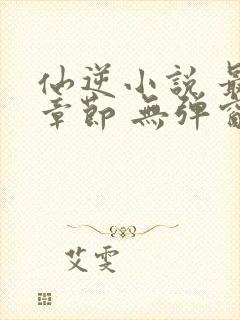 仙逆小說 最
章節 無彈窗
艾雯